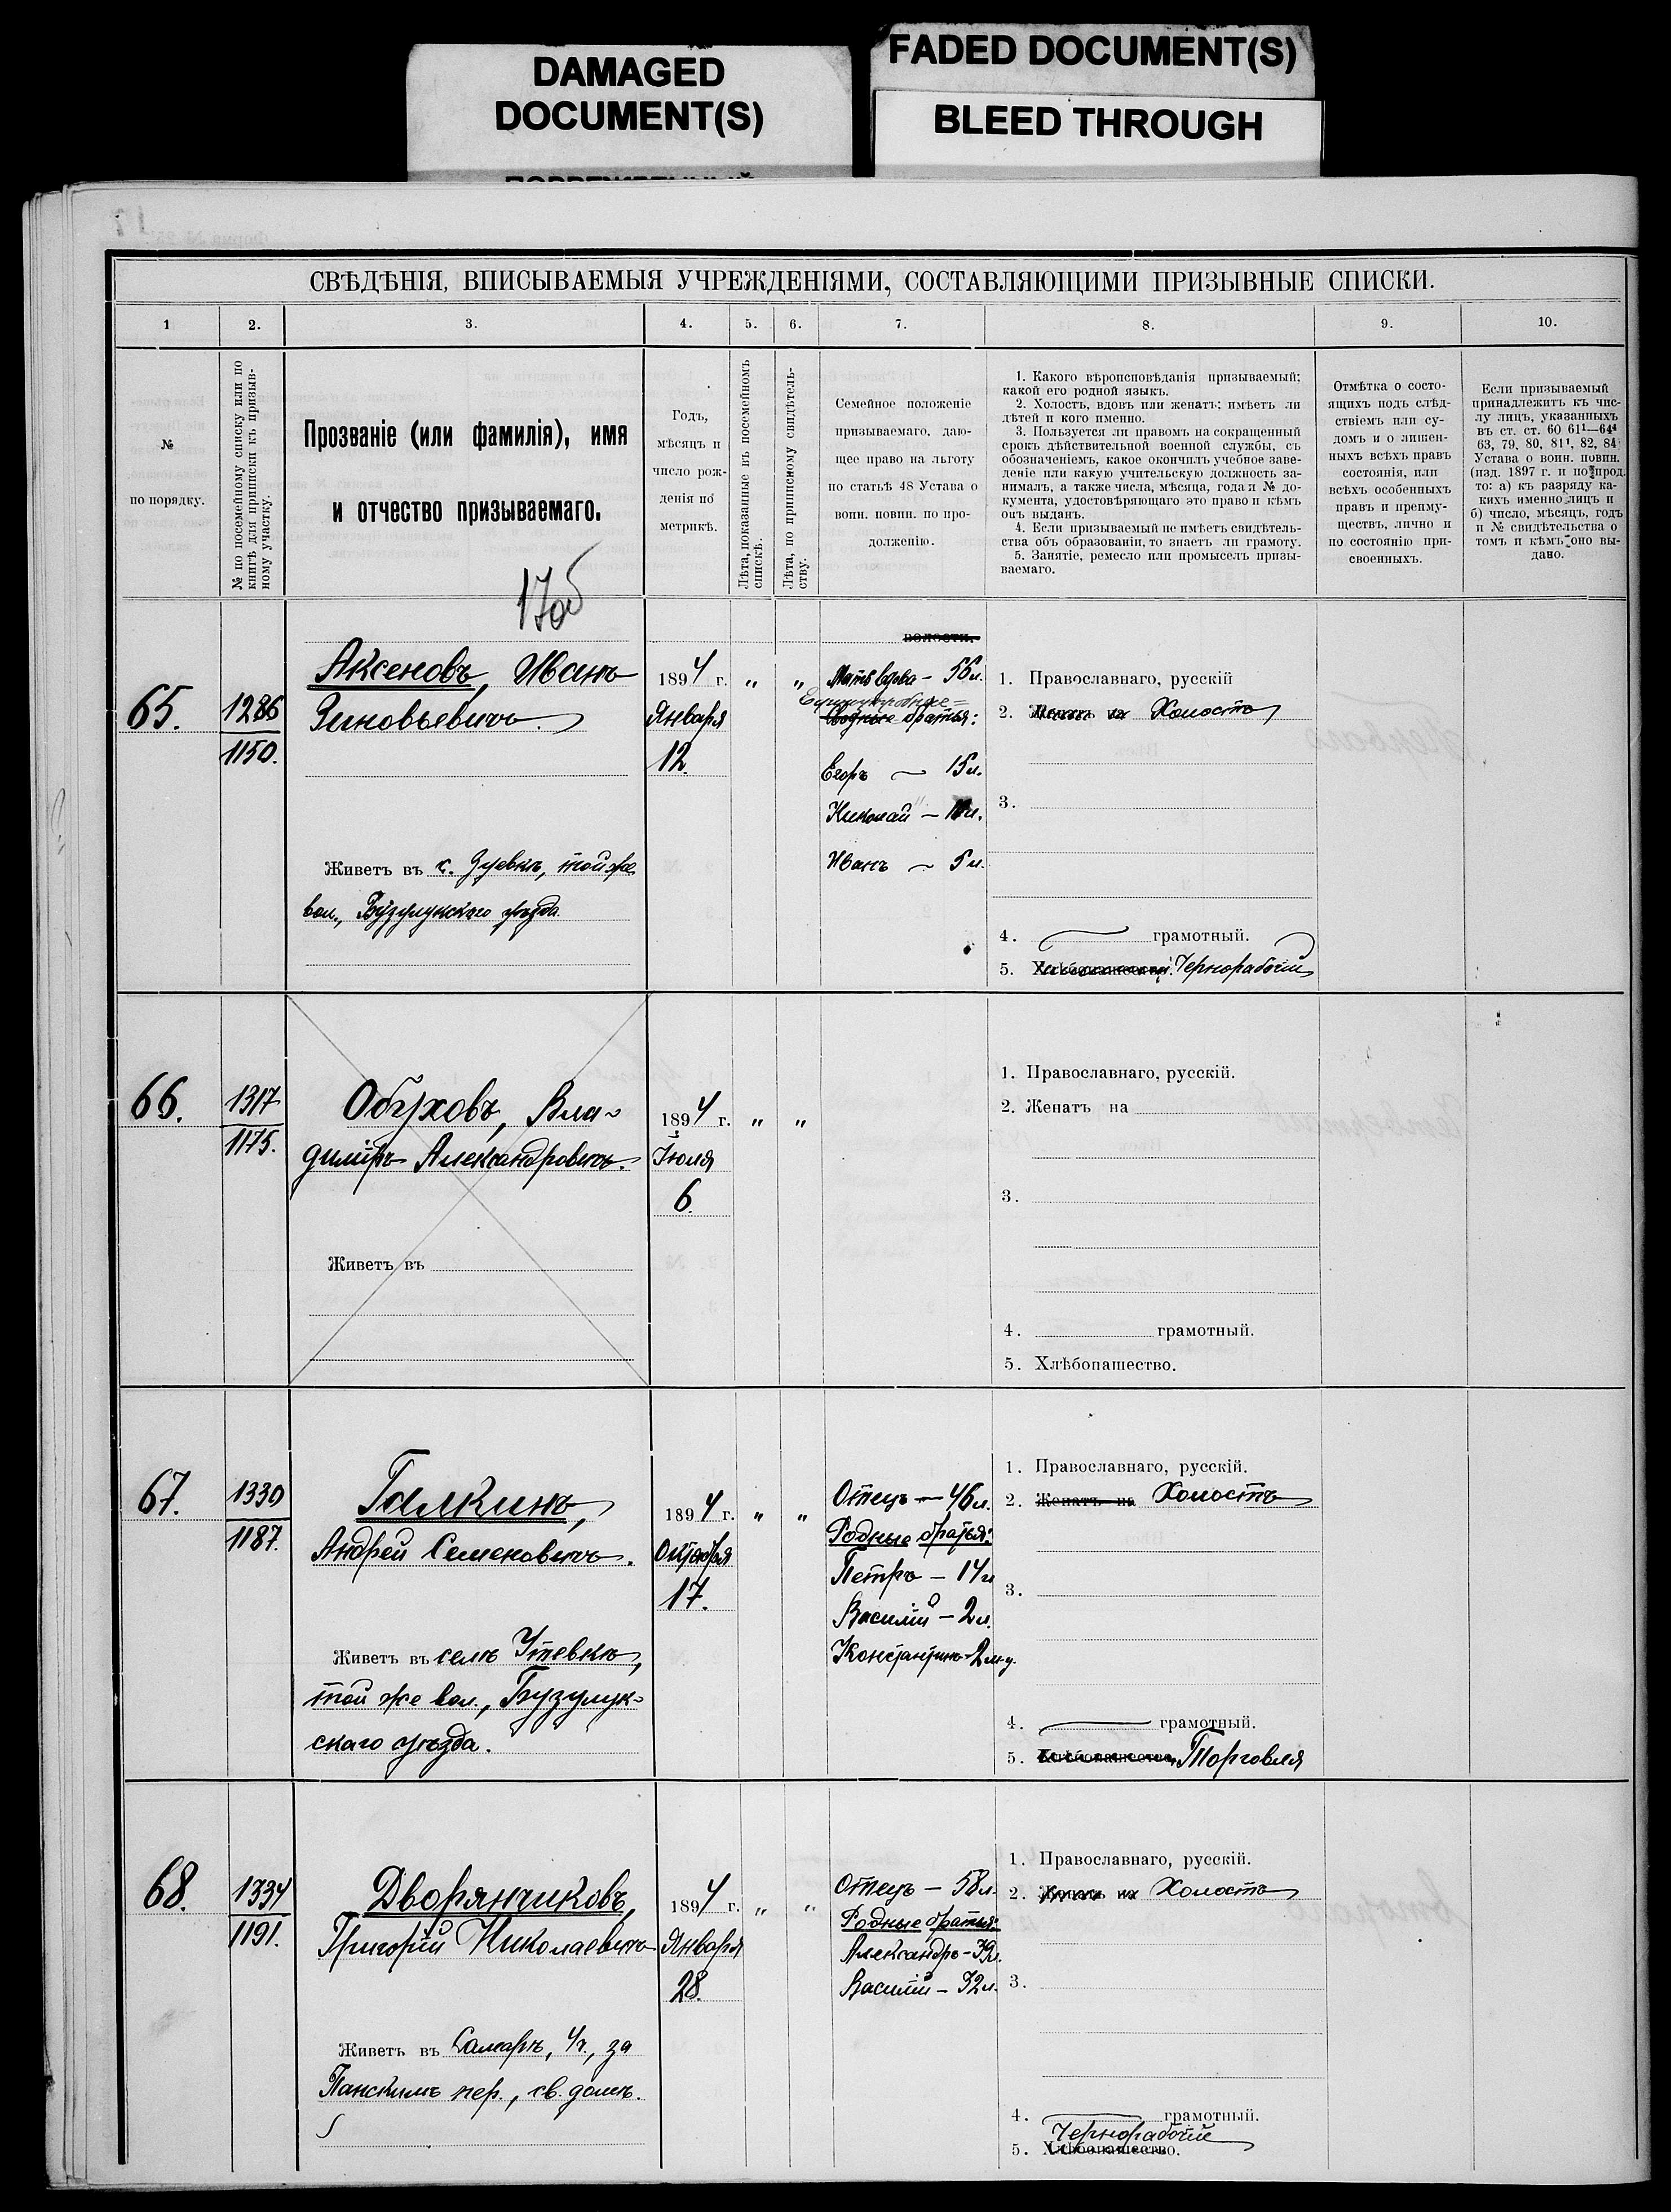 DAMAGED
DOCUMENT(S)
FADED DOCUMENT(S)
BLEED THROUGH
СВѢДѢНІЯ, ВПИСЫВАЕМЫЯ УЧРЕЖДЕНІЯМИ, СОСТАВЛЯЮЩИМИ ПРИЗЫВНЫЕ СПИСКИ.
1 2. 3. 4. 5. 6. 7. 8. 9. 10.
№
по порядку.
№ по посемейному списку или по
книгѣ для приписки къ призыв-
ному участку.
Прозваніе (или фамилія), имя
и отчество призываемаго.
Годъ,
мѣсяцъ и
число рож-
денія по
метрикѣ.
Лѣта, показанные въ посемейномъ
спискѣ.
Лѣта, по приписному свидѣтель-
ству.
Семейное положеніе
призываемаго, даю-
щее право на льготу
по статьѣ 48 Устава о
воин. повин. по про-
долженію.
1. Какого вѣроисповѣданія призываемый;
какой его родной языкъ.
2. Холостъ, вдовъ или женатъ; имѣетъ ли
дѣтей и кого именно.
3. Пользуется ли правомъ на сокращенный
срокъ дѣйствительной военной службы, съ
обозначеніемъ, какое окончилъ учебное заве-
деніе или какую учительскую должность за-
нималъ, а также числа, мѣсяца, года и № до-
кумента, удостовѣряющаго это право и кѣмъ
онъ выданъ.
4. Если призываемый не имѣетъ свидѣтель-
ства объ образованіи, то знаетъ ли грамоту.
5. Занятіе, ремесло или промыселъ призы-
ваемаго.
Отмѣтка о состо-
ящихъ подъ слѣд-
ствіемъ или су-
домъ и о лишен-
ныхъ всѣхъ правъ
состоянія, или
всѣхъ особенныхъ
правъ и преиму-
ществъ, лично и
по состоянію при-
своенныхъ.
Если призываемый
принадлежитъ къ чис-
лу лицъ, указанныхъ
въ ст. ст. 60 61¹—64⁴
63, 79, 80, 81¹, 82, 84
Устава о воин. повин.
(изд. 1897 г. и по прод.
то: а) къ разряду ка-
кихъ именно лицъ и
б) число, мѣсяцъ, годъ
и № свидѣтельства о
томъ и кѣмъ оно вы-
дано.
17об
65.
1286
1150.
Аксеновъ, Иванъ
Зиновьевичъ.
Живетъ въ с. Зуевкѣ, той же
вол., Бузулукскаго уѣзда.
1894 г.
Января
12.
" "
волости.
Мать вдова — 56 л.
Единоутробные
Сводные братья:
Егоръ — 15 л.
Николай — л.
Иванъ — 5 л.
1. Православнаго, русскій
2. Женатъ на Холостъ
3.
4. грамотный.
5. Хлѣбопашество. Чернорабочій
66.
1317
1175.
Обуховъ, Вла-
димiръ Александровичъ.
Живетъ въ
1894 г.
Іюля
6.
" "
1. Православнаго, русскій.
2. Женатъ на
3.
4. грамотный.
5. Хлѣбопашество.
67.
1330
1187.
Галкинъ,
Андрей Семеновичъ.
Живетъ въ селѣ Утевкѣ,
той же вол., Бузулук-
скаго уѣзда.
1894 г.
Октября
17.
" "
Отецъ — 46 л.
Родные братья:
Петръ — 14 л
Василій — 2 л.
Константинъ — 2
1. Православнаго, русскій.
2. Женатъ на Холостъ
3.
4. грамотный.
5. Хлѣбопашество. Торговля
68.
1334
1191.
Дворянчиковъ,
Григорій Николаевичъ
Живетъ въ Самарѣ, 4 ч., за
Панскимъ пер., св. домъ.
1894 г.
Января
28.
" "
Отецъ — 58 л.
Родные братья:
Александръ — 39 л.
Василій — 32 л.
1. Православнаго, русскій.
2. Женатъ на Холостъ
3.
4. грамотный.
Чернорабочій
5. Хлѣбопашество.